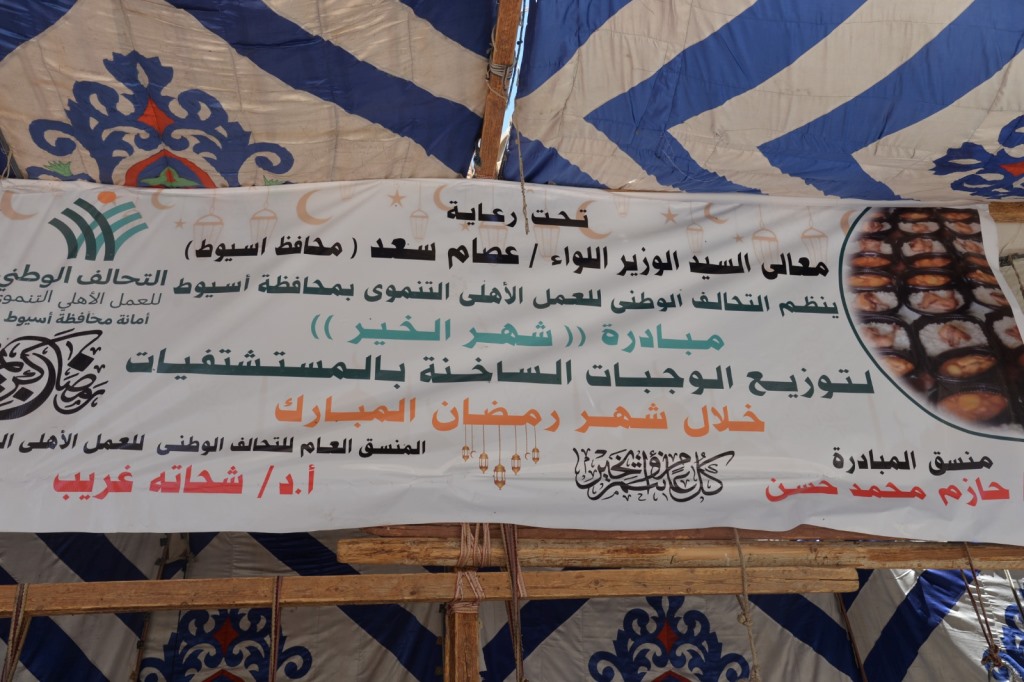 تحت رعاية
معالى السيد الوزير اللواء / عصام سعد ( محافظ اسيوط )
ينظم التحالف الوطنى للعمل الأهلى التنموى بمحافظة أسيوط
مبادرة (( شهر الخير ))
لتوزيع الوجبات الساخنة بالمستشتفيات
خلال شهر رمضان المبارك
التحالف الوطني
للعمل الأهلي التنموي
أمانة محافظة أسيوط
رمضان كريم
منسق المبادرة
حازم محمد حسن
كل عام وأنتم بخير
المنسق العام للتحالف الوطنى للعمل الأهلى
أ.د/ شحاته غريب